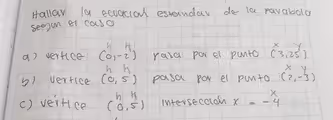 Hallar la ecuacion estandar de la parabola
segun el caso
h k x y
a) vertice (0,-2) pasa por el punto (3,25)
h k x y
b) vertice (0,5) pasa por el punto (2,-3)
h k x
c) vértice (0,5) intersección x = -4